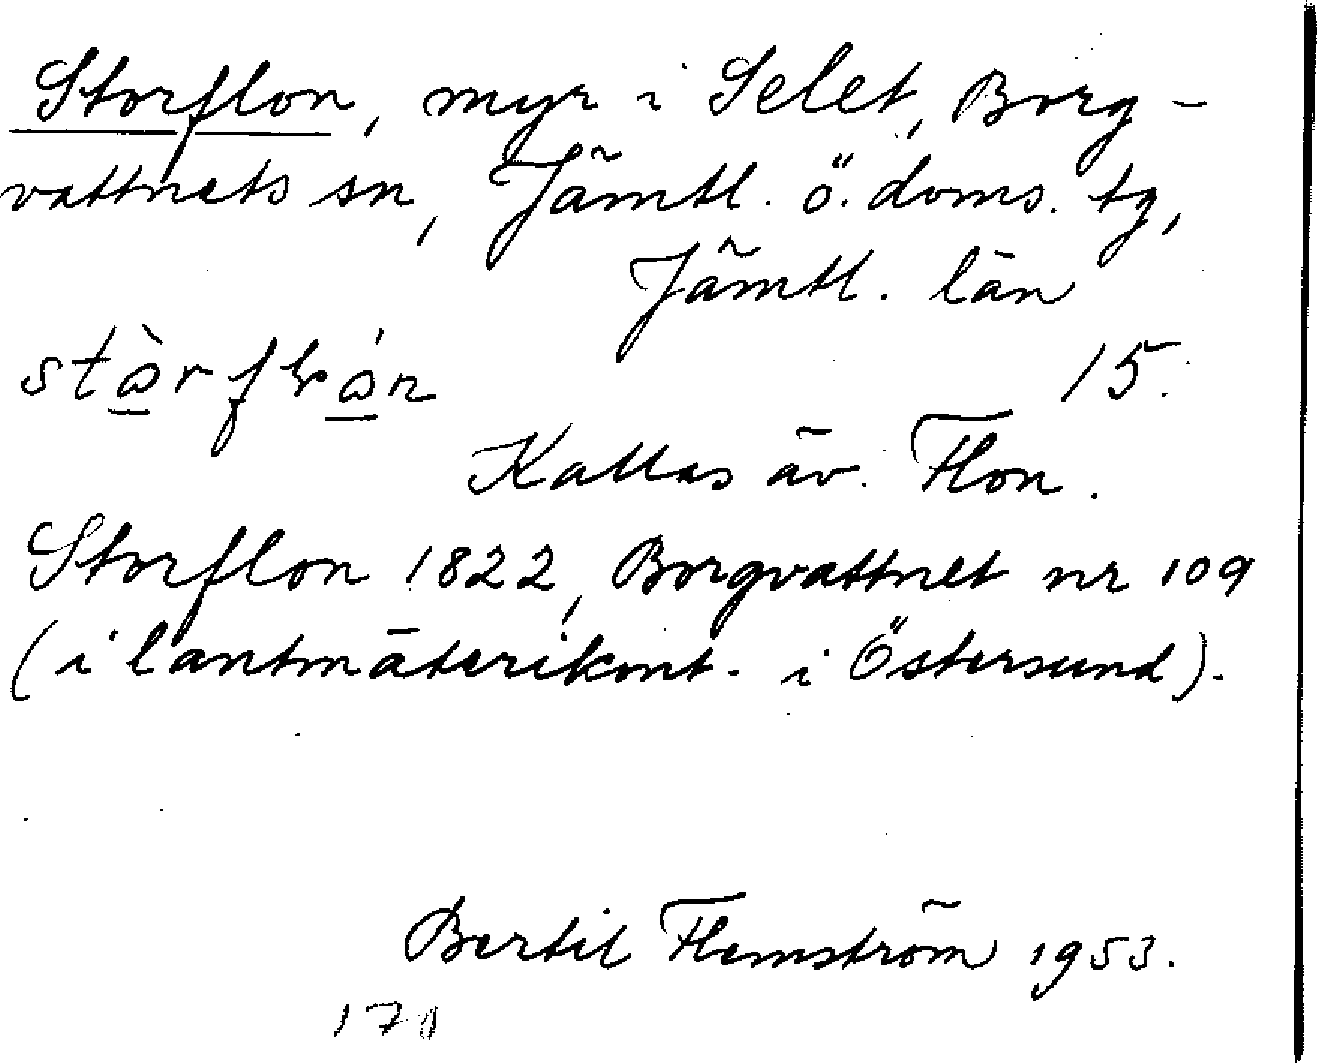 Storflon, myr i Selet, Borg-
vattnets sn, Jämtl. ö. doms. tg,
Jämtl. län
15.
Kallas äv. Flon.
Storflon 1822, Borgvattnet nr 109
(i lantmäterikont. i Östersund).
Bertil Flemström 1953.